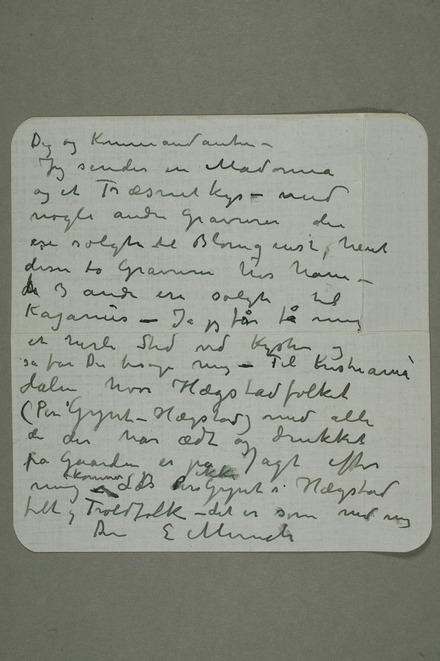 Dig og Kommandanten –
Jeg sender en Madonna
og et Træsnit Kys – med
nogle andre Gravurer der
ere solgte til Blomqvist, hent
disse to Gravurer hos ham –
De 3 andre ere solgte til
Kaganus – Ja jeg får få mig
et hvile Sted ved Kysten og
så får Du besøge mig – Til Kristiania
dalen hvor Hægstadfolket
(Per Gynt – Hægstad) med alle
de der har ædt og drukket
på Gaarden er på Jagt efter
mig kommer jeg ikke Per Gynt i Hægstad
felt og Troldfolk – det er som med mig
Din E Munch